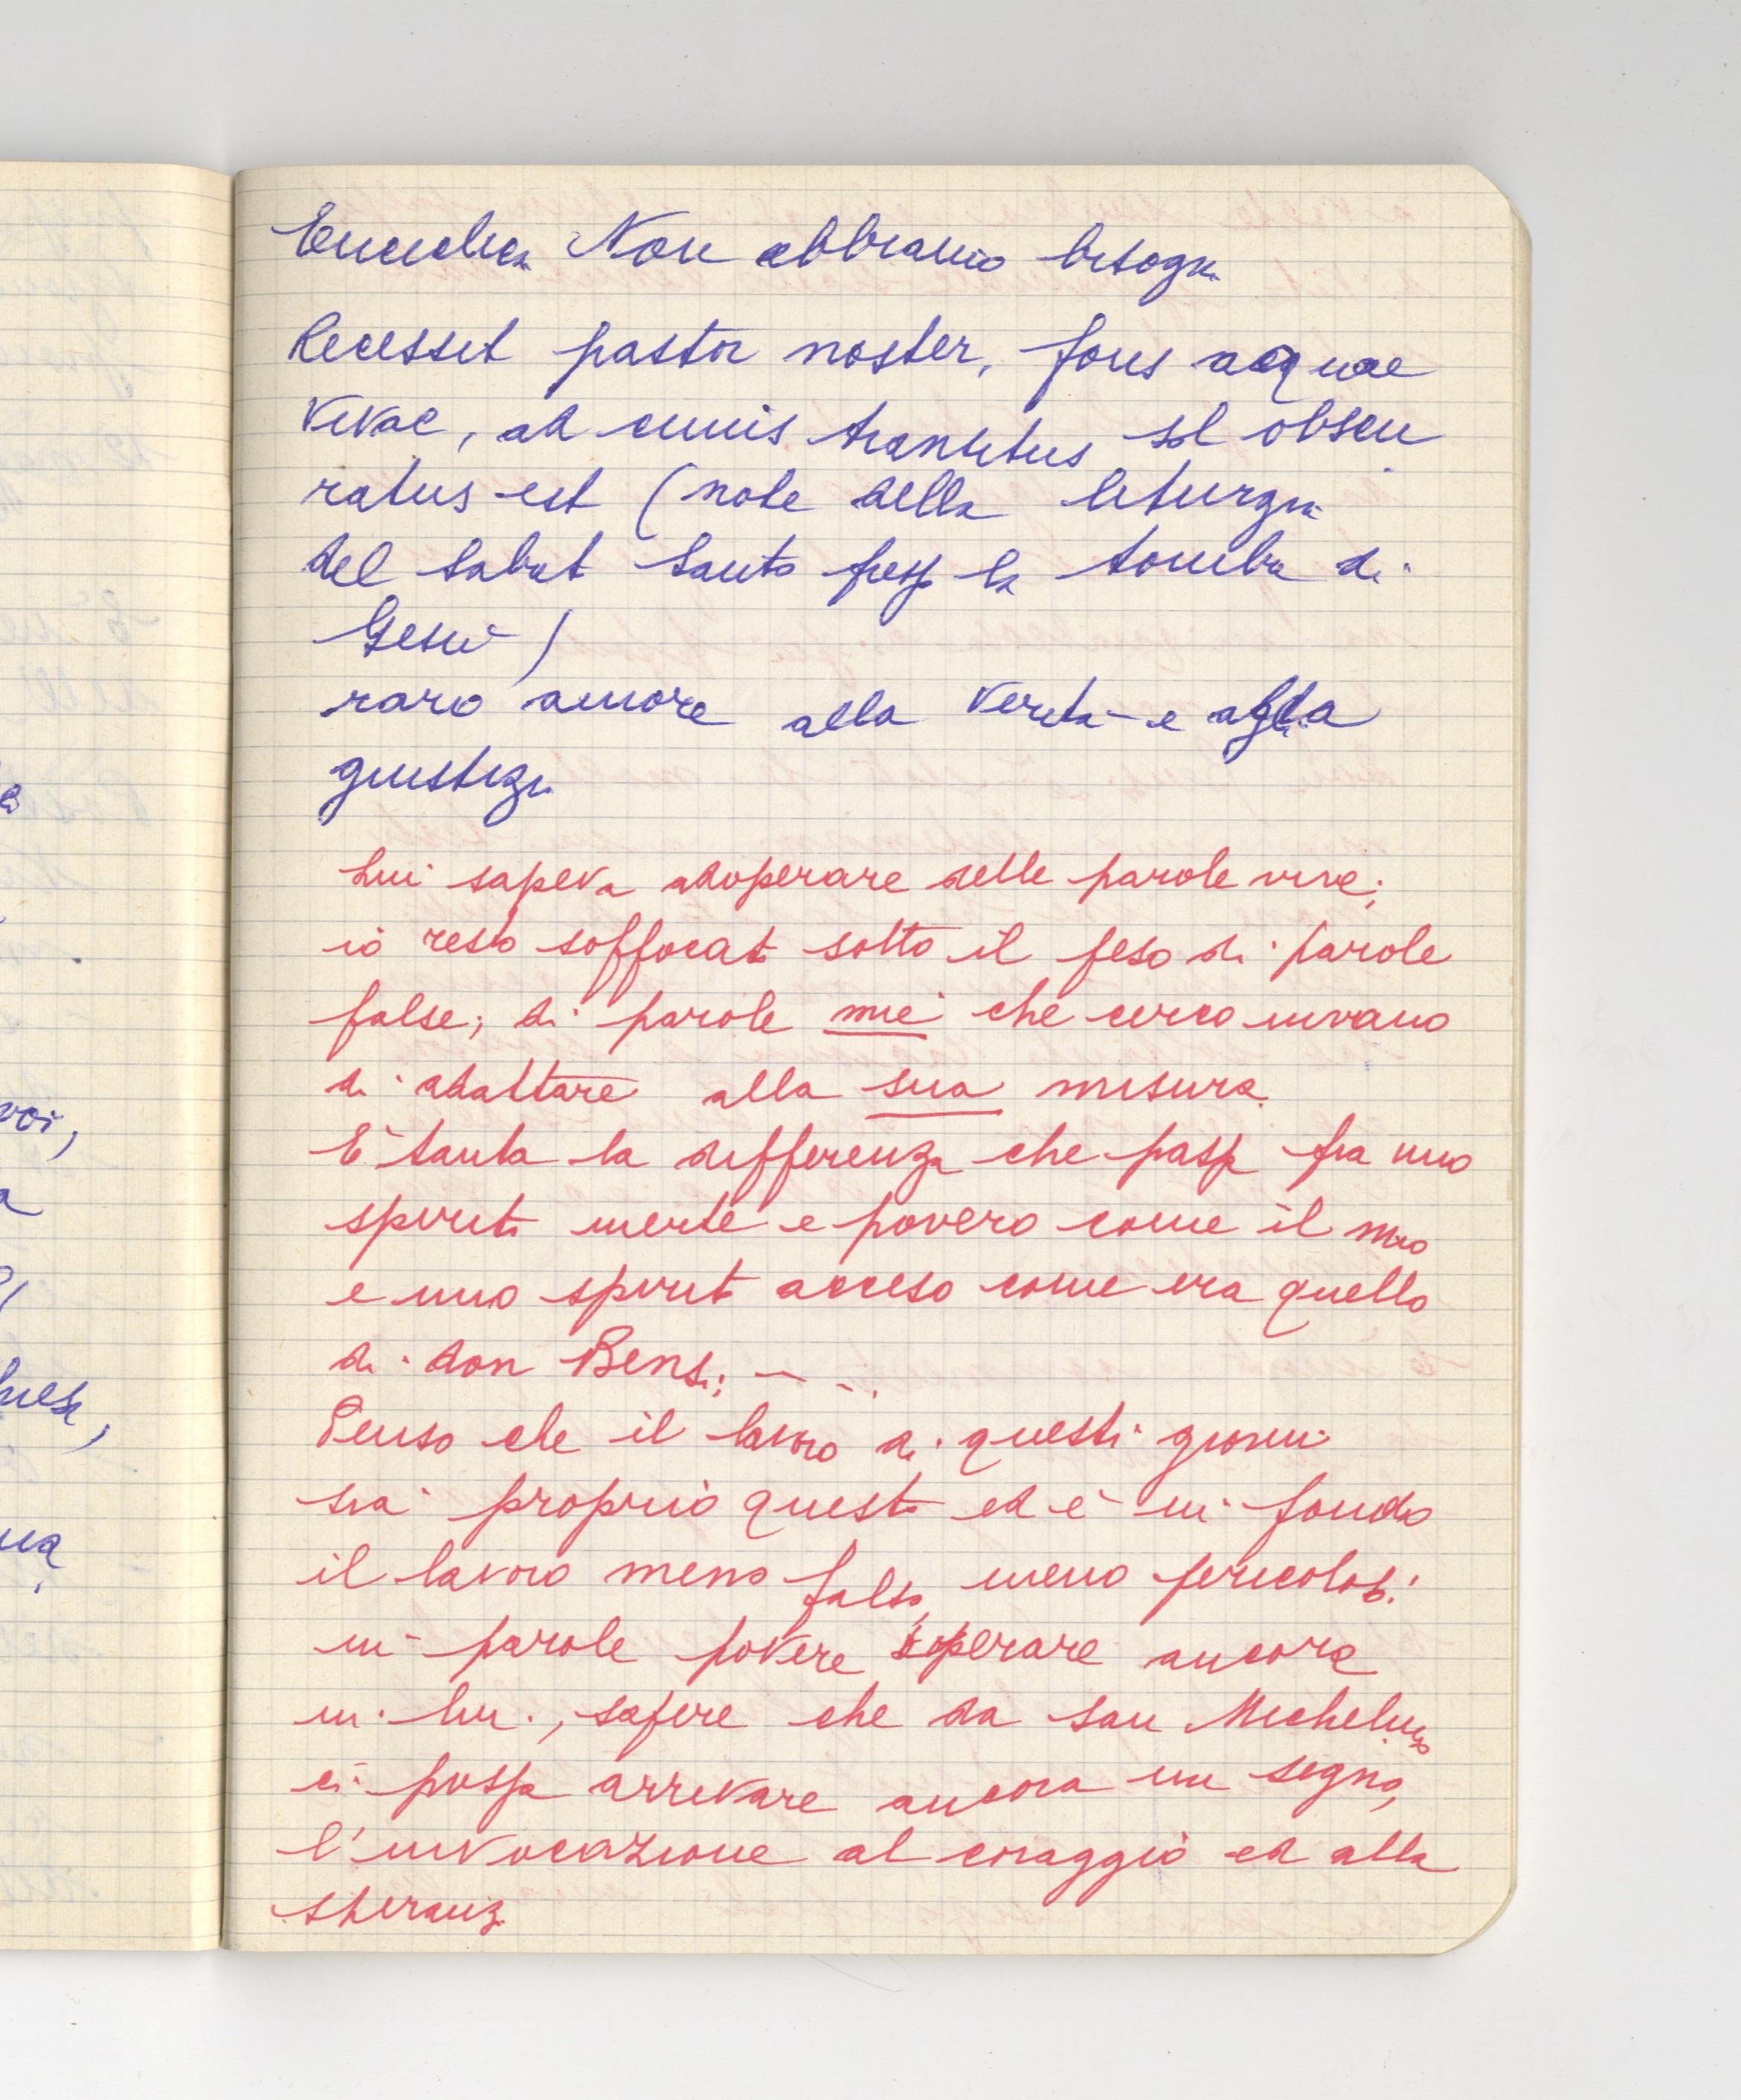 Enciclica Non abbiamo bisogno
Recessit pastor noster, fons aquae
vivae, ad cuius transitus sol obscu
ratus est (note della liturgia
del Sabato Santo presso la tomba di
Gesù)
raro amore alla verità e alla
giustizia
Lui sapeva adoperare delle parole vive;
io resto soffocato sotto il peso di parole
false; di parole mie che cerco invano
di adattare alla sua misura.
E' tanta la differenza che passa fra uno
spirito inerte e povero come il mio
e uno spirito acceso come era quello
di don Bensi; - - .
Penso che il lavoro di questi giorni
sia proprio questo ed è in fondo
il lavoro meno falso, meno pericoloso:
in parole povere sperare ancora
in lui, sapere che da san Michelino
ci possa arrivare ancora un segno,
l'invocazione al coraggio ed alla
speranza
voi,